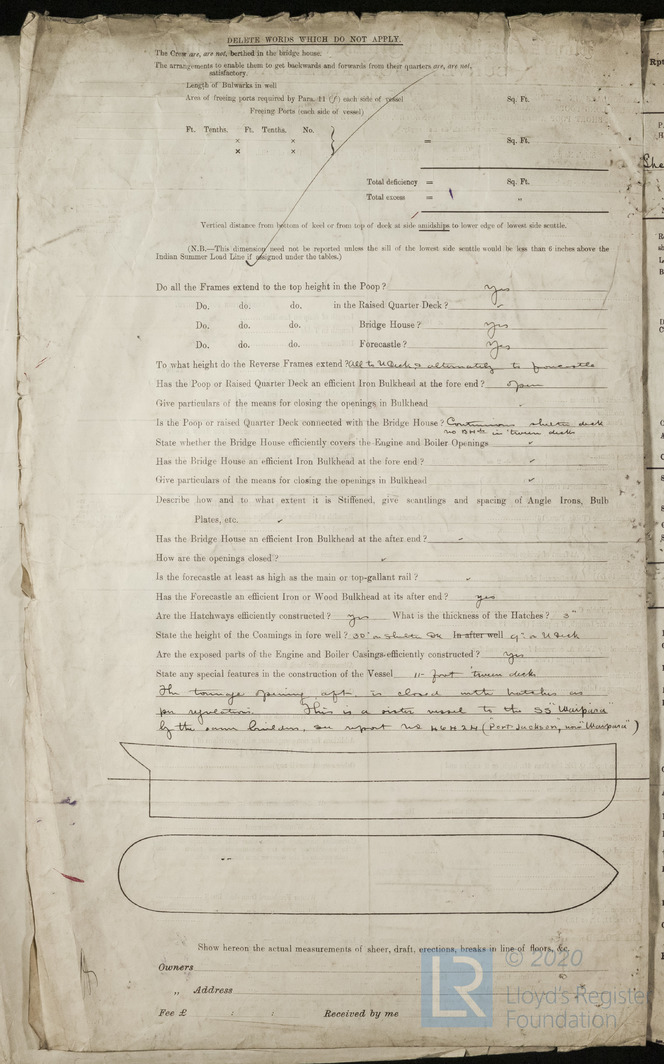 DELETE WORDS WHICH DO NOT APPLY.
The Crew are, are not, berthed in the bridge house.
The arrangements to enable them to get backwards and forwards from their quarters are, are not,
satisfactory.
Length of Bulwarks in well
Area of freeing ports required by Para. 11 (f) each side of vessel Sq. Ft.
Freeing Ports (each side of vessel)
Ft. Tenths. Ft. Tenths. No.
× × = Sq. Ft.
× ×
Total deficiency = Sq. Ft.
Total excess = „
Vertical distance from bottom of keel or from top of deck at side amidships to lower edge of lowest side scuttle.
(N.B.—This dimension need not be reported unless the sill of the lowest side scuttle would be less than 6 inches above the
Indian Summer Load Line if assigned under the tables.)
Do all the Frames extend to the top height in the Poop? Yes
Do. do. do. in the Raised Quarter Deck?
Do. do. do. Bridge House? Yes
Do. do. do. Forecastle? Yes
To what height do the Reverse Frames extend? All to U Deck & alternately to forecastle
Has the Poop or Raised Quarter Deck an efficient Iron Bulkhead at the fore end? open
Give particulars of the means for closing the openings in Bulkhead
Is the Poop or raised Quarter Deck connected with the Bridge House? Continuous shelter deck
no BHds in 'tween decks
State whether the Bridge House efficiently covers the Engine and Boiler Openings
Has the Bridge House an efficient Iron Bulkhead at the fore end?
Give particulars of the means for closing the openings in Bulkhead
Describe how and to what extent it is Stiffened, give scantlings and spacing of Angle Irons, Bulb
Plates, etc.
Has the Bridge House an efficient Iron Bulkhead at the after end?
How are the openings closed?
Is the forecastle at least as high as the main or top-gallant rail?
Has the Forecastle an efficient Iron or Wood Bulkhead at its after end? yes
Are the Hatchways efficiently constructed? yes What is the thickness of the Hatches? 3"
State the height of the Coamings in fore well? 30" on Shelter Dk In after well 9" on U Deck
Are the exposed parts of the Engine and Boiler Casings efficiently constructed? Yes
State any special features in the construction of the Vessel foot 'tween decks
The tonnage opening aft is closed with hatches as
per regulation. This is a sister vessel to the SS "Waipara"
by the same builders, see report No 46424 (Port Jackson, now "Waipara")
Show hereon the actual measurements of sheer, draft, erections, breaks in line of floors, &c.
Owners
„ Address
Fee £ : : Received by me
LR © 2020
Lloyd's Register
Foundation